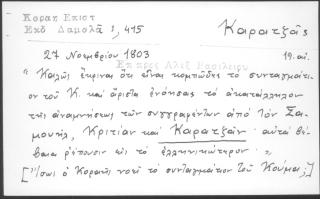 Κοραη Επιστ
Εκδ Δαμαλᾶ 1, 415
Καρατζᾶς
27 Νοεμβρίου 1803
19. αἰ.
Ἐπ πρὸς Ἀλεξ Βασιλείου
"Καλῶς ἔκρινας ὅτι εἶναι κομπῶδες τὸ συνταγμάτι-
ον τοῦ Κ. καὶ ἄριστα ἐνόησας τὸ ἀκατάλληλον
τῆς ἀναμνήσεως τῶν συγγραφέντων ἀπὸ τὸν Σα-
μουήλ, Κριτίαν καὶ Καρατζᾶν· αὐτὰ βέ-
βαια ῥέπουσιν εἰς τὸ ἑλληνικώτερον· "
[Ἴσως ὁ Κοραῆς νοεῖ τὸ συνταγμάτιον τοῦ Κούμα;]